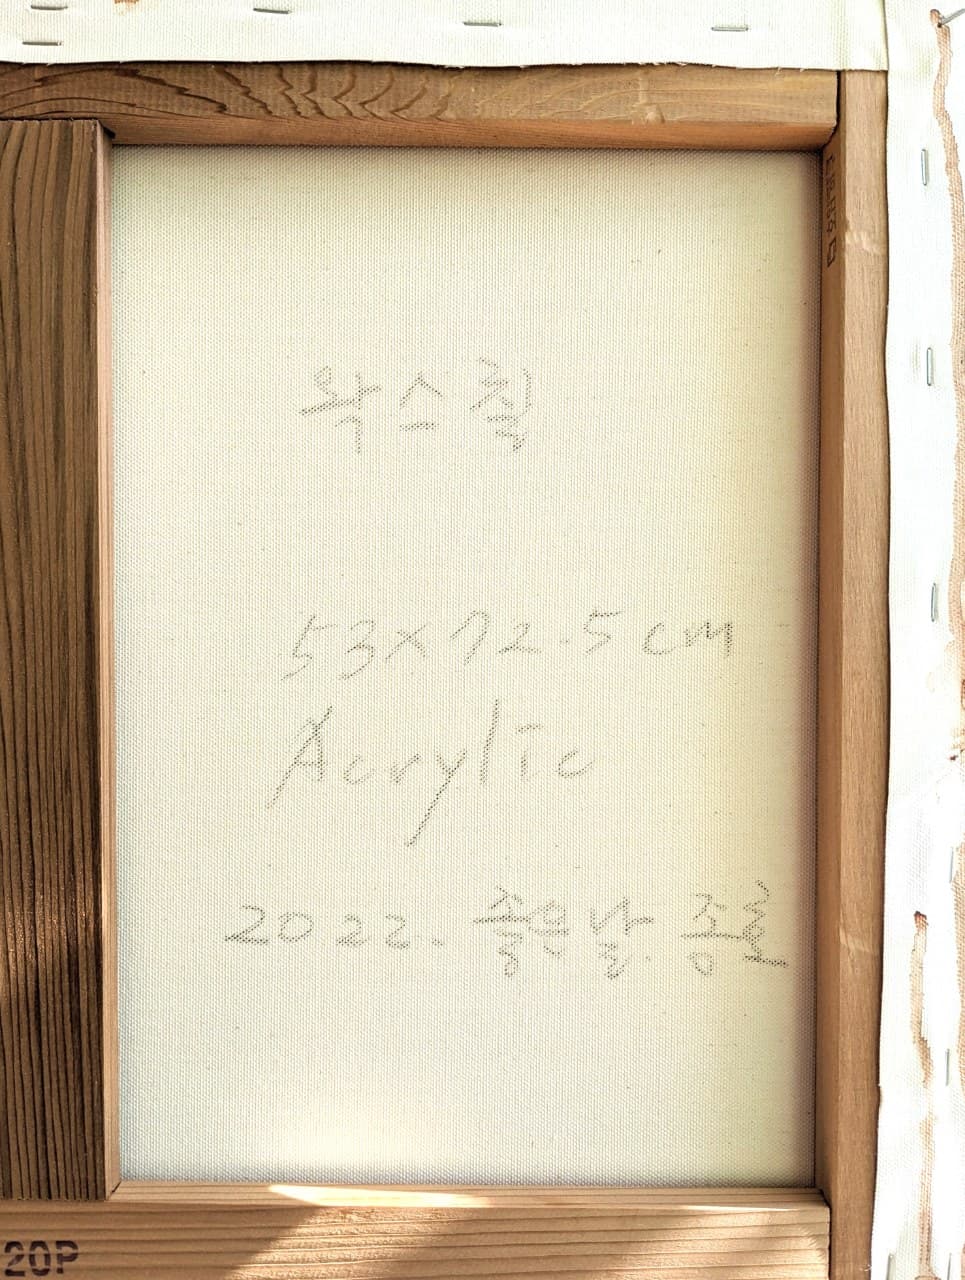 왁스칠
53×72.5cm
Acrylic
2022. 좋은날. 종효
20P